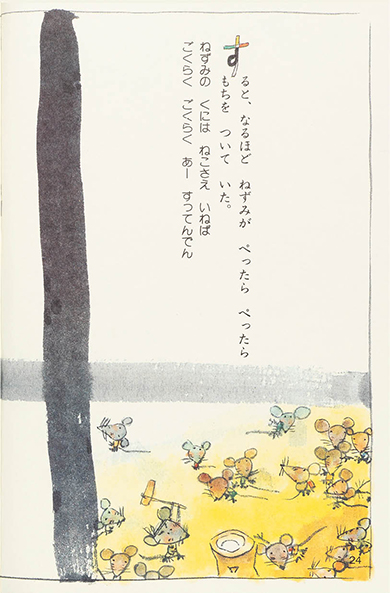 すると、なるほど ねずみが ぺったら ぺったら
もちを ついて いた。
ねずみの くにには ねこさえ いねば
ごくらく ごくらく あー すってんでん
24